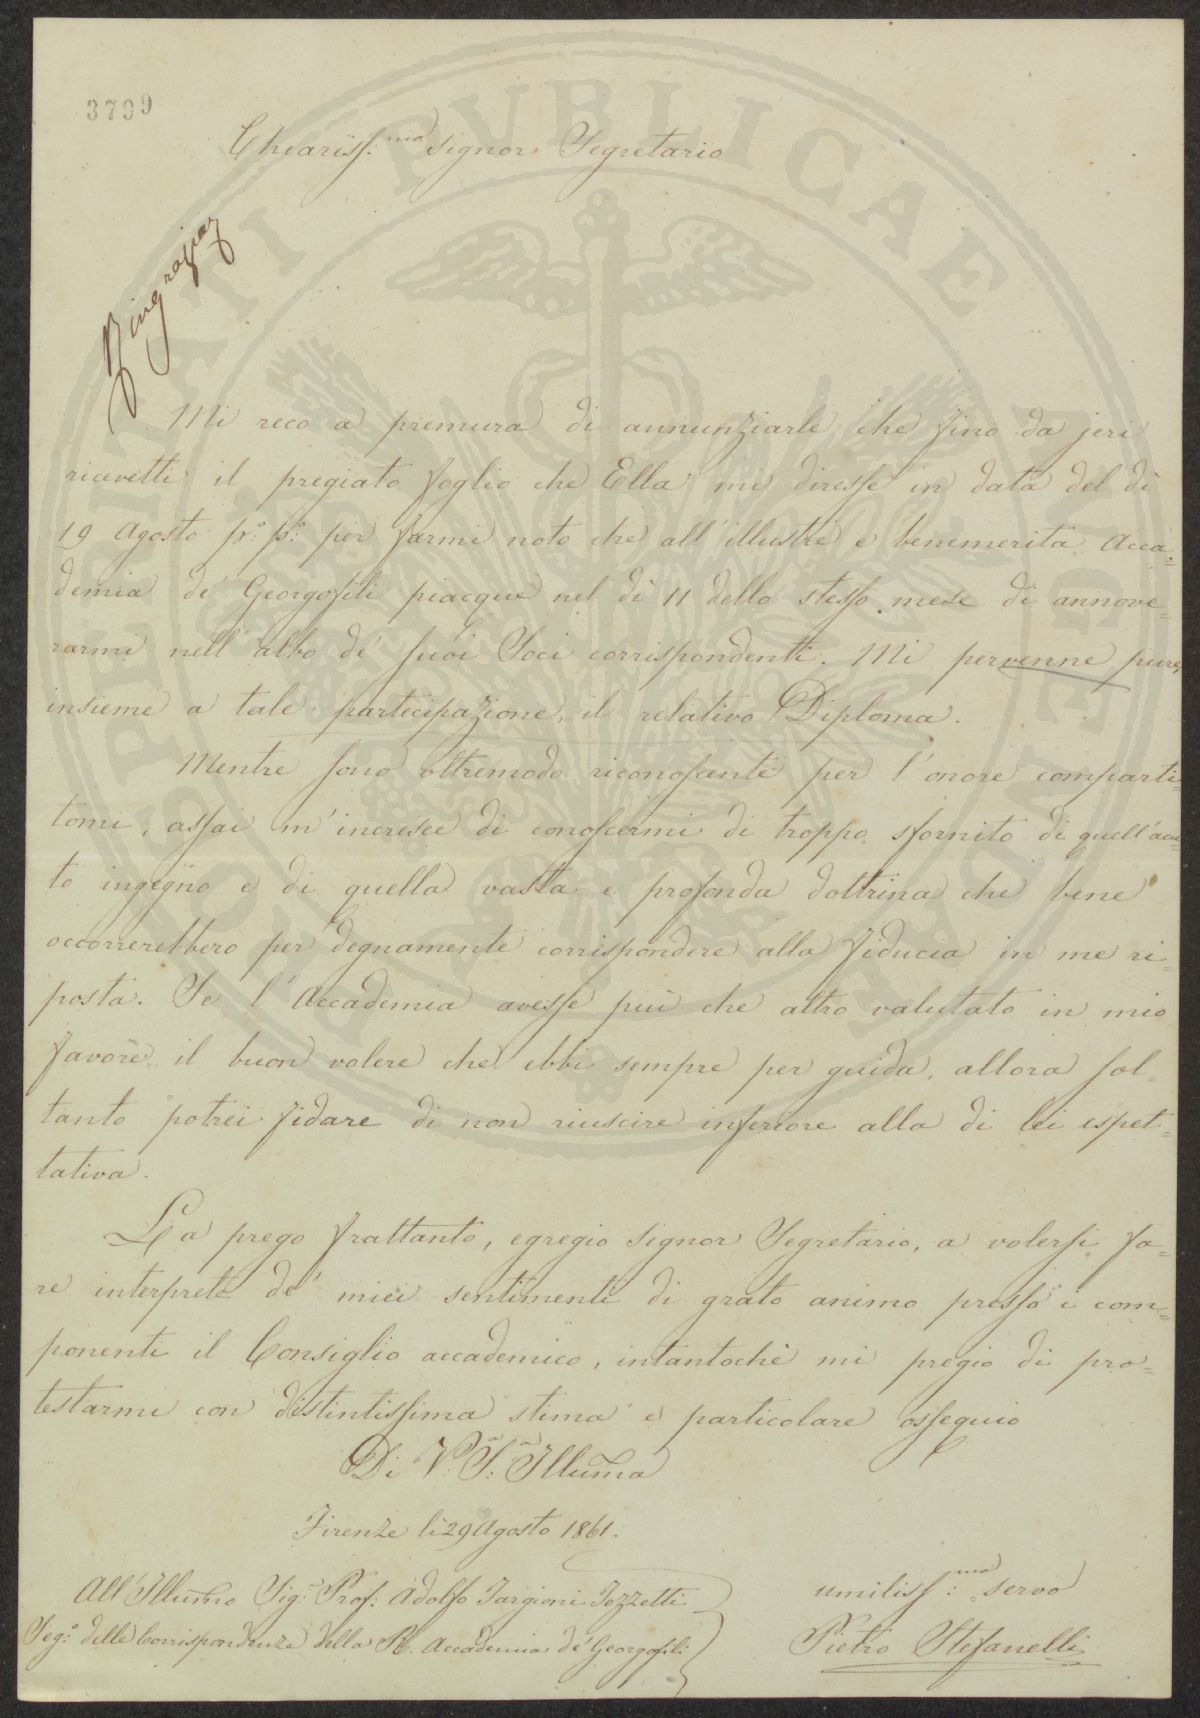 3799
Chiariss:mo Signor Segretario
Ringraziar
Mi reco a premura di annunziarle che fino da jeri
ricevetti il pregiato foglio che Ella mi diresse in data del dì
19 Agosto pr:o p:o per farmi noto che all'illustre e benemerita Acca=
demia de' Georgofili piacque nel dì 11 dello stesso mese di annove=
rarmi nell'albo de' suoi Soci corrispondenti. Mi pervenne pure,
insieme a tale partecipazione, il relativo Diploma.
Mentre sono oltremodo riconoscente per l'onore comparti=
tomi, assai m'incresce di conoscermi di troppo sfornito di quell'acu=
to ingegno e di quella vasta e profonda dottrina che bene
occorrerebbero per degnamente corrispondere alla fiducia in me ri=
posta. Se l'Accademia avesse più che altro valutato in mio
favore il buon volere che ebbi sempre per guida, allora sol=
tanto potrei fidare di non riuscire inferiore alla di lei espet=
tativa.
La prego frattanto, egregio Signor Segretario, a volersi fa=
re interprete de' miei sentimenti di grato animo presso i com=
ponenti il Consiglio accademico, intantochè mi pregio di pro=
testarmi con distintissima stima e particolare ossequio
Di V: S: Illuma
Firenze li 29 Agosto 1861.
All'Illumo Sig: Prof: Adolfo Targioni Tozzetti
Seg:o delle Corrispondenze della R. Accademia de' Georgofili
umiliss:mo servo
Pietro Stefanelli